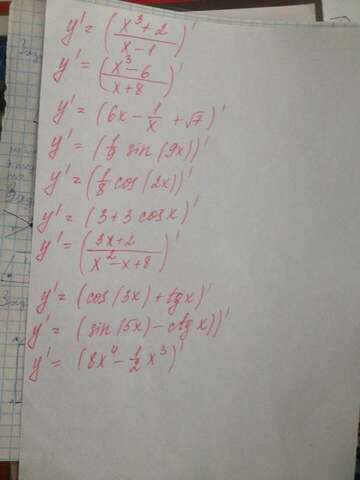 y' = (x³+2 / x-1)'
y' = (x³-6 / x+8)'
y' = (6x - 1/x + √7)'
y' = (1/9 sin(9x))'
y' = (1/8 cos(2x))'
y' = (3+3 cosx)'
y' = (3x+2 / x²-x+8)'
y' = (cos(3x)+tgx)'
y' = (sin(5x)-ctgx))'
y' = (8x⁴ - 1/2 x³)'